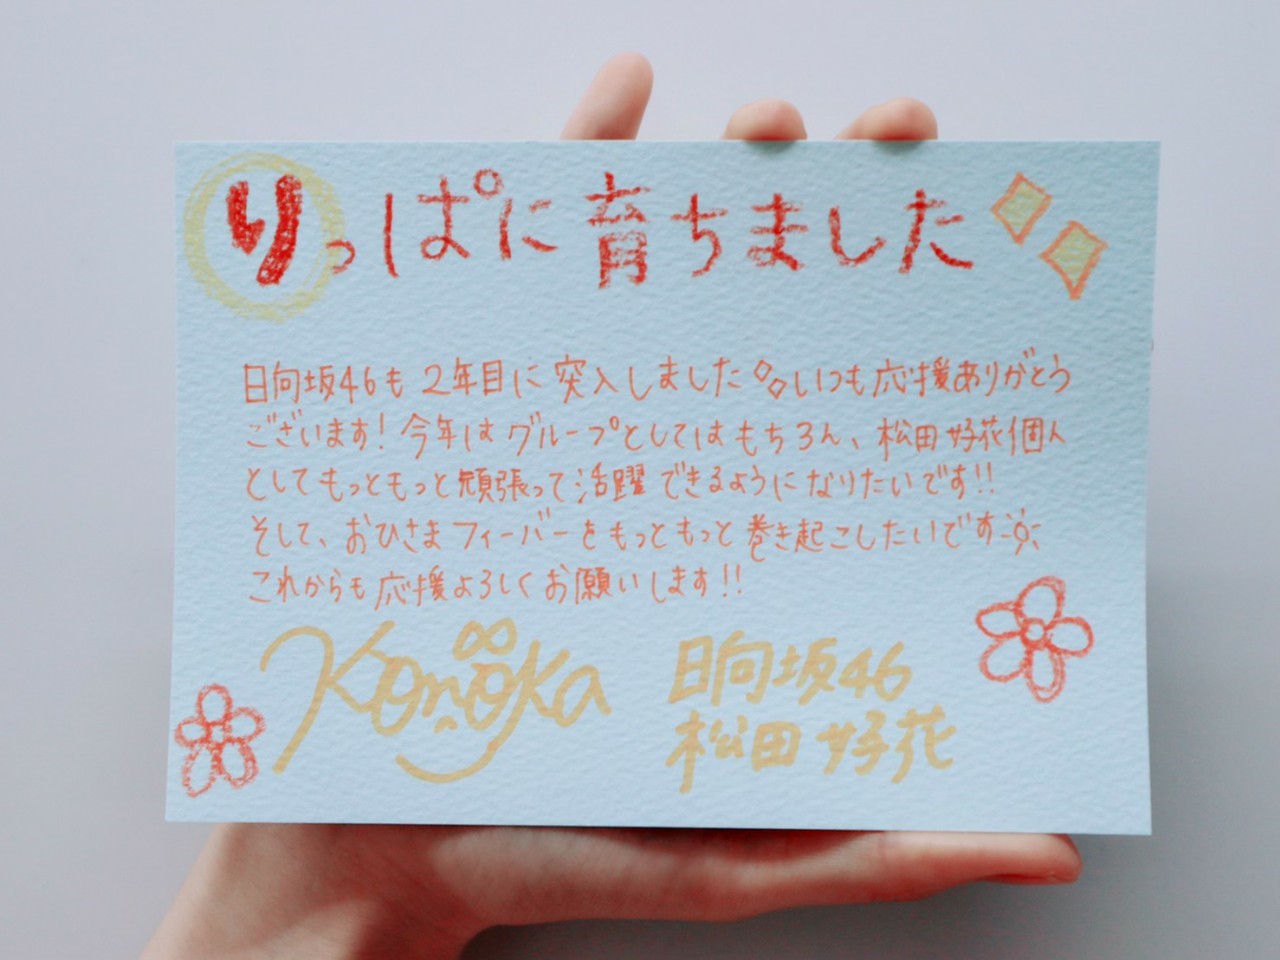 りっぱに育ちました
日向坂46も2年目に突入しましたいつも応援ありがとう
ございます!今年はグループとしてはもちろん、松田好花個人
としてもっともっと頑張って活躍できるようになりたいです!!
そして、おひさまフィーバーをもっともっと巻き起こしたいです
これからも応援よろしくお願いします!!
Konoka
日向坂46
松田好花